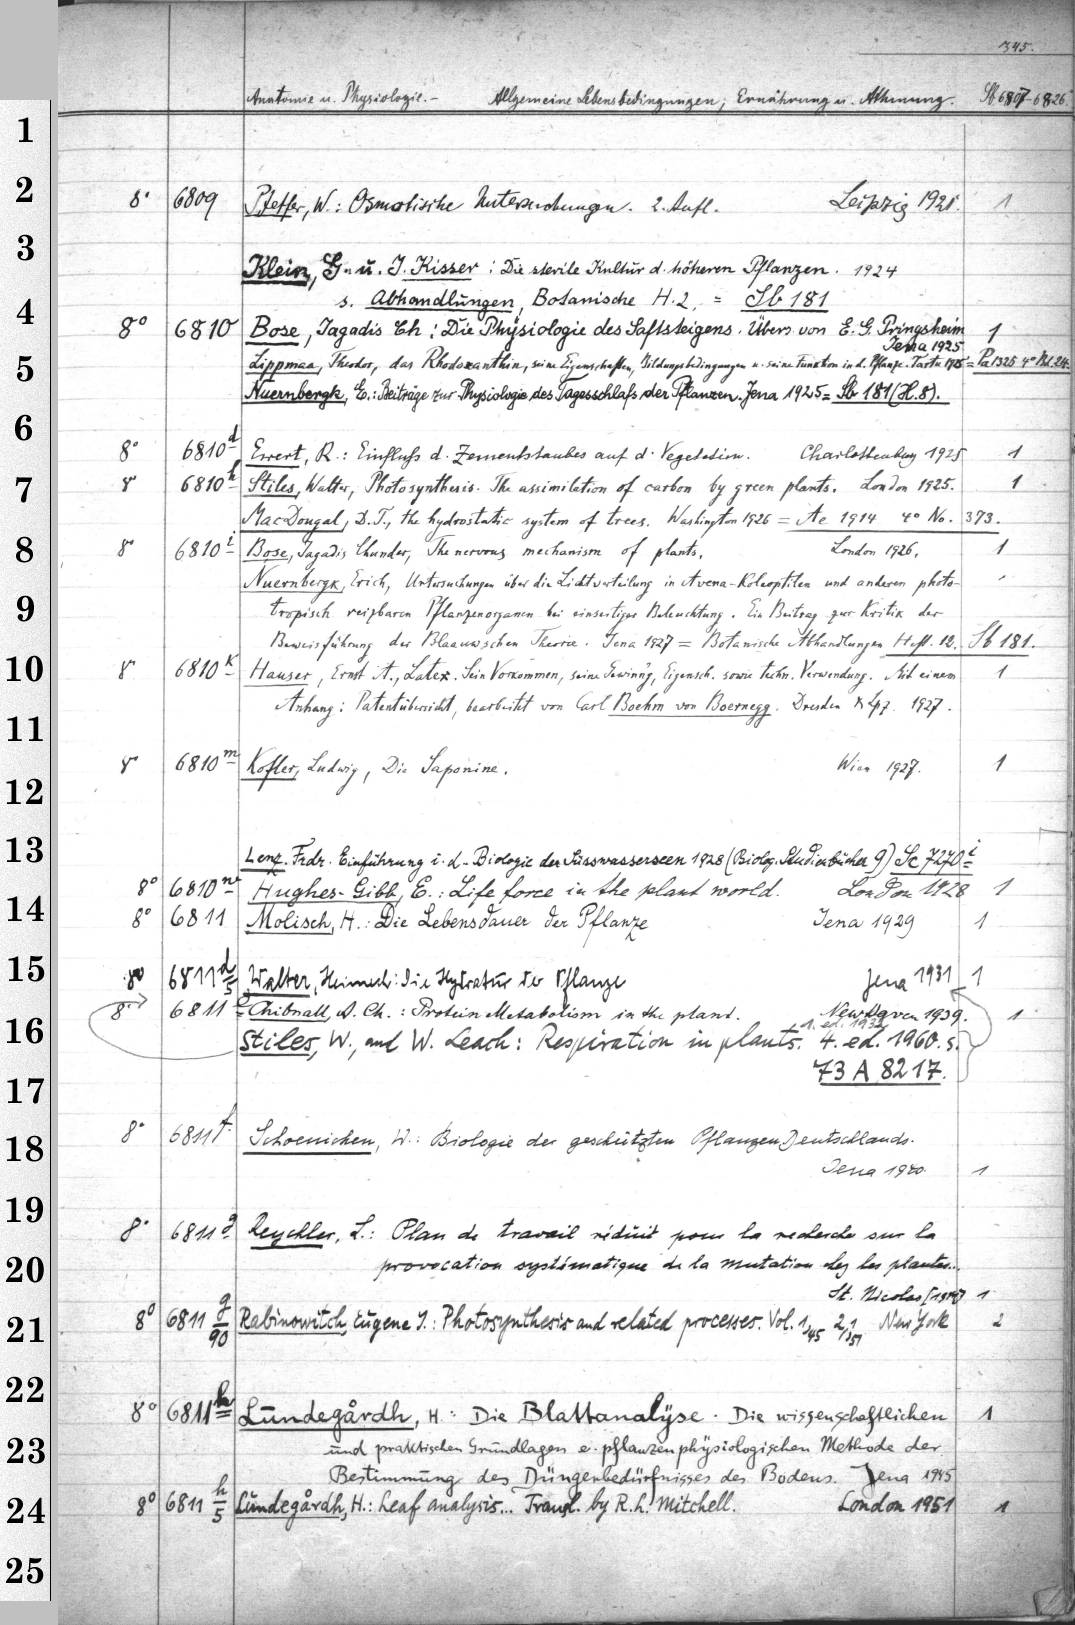 345.
Anatomie u. Physiologie.- Allgemeine Lebensbedingungen; Ernährung u. Athmung. Sb 6807-6826.
1
2 8° 6809 Pfeffer, W.: Osmotische Untersuchungen. 2. Aufl. Leipzig 1921. 1
3 Klein, G. u. J. Kisser: Die sterile Kultur d. höheren Pflanzen. 1924
s. Abhandlungen, Botanische H.2. = Sb 181
4 8° 6810 Bose, Jagadis Ch: Die Physiologie des Saftsteigens. Übers. von E. G. Pringsheim 1
Jena 1925
5 Lippmaa, Theodor, das Rhodoxanthin, seine Eigenschaften, Bildungsbedingungen u. seine Funktion in d. Pflanze. Tartu 1925 = Pa 1325 4° Bd. 24.
Nuernbergk, E.: Beiträge zur Physiologie des Tagesschlafs der Pflanzen. Jena 1925 = Sb 181 (H.8).
6
8° 6810 d Ewert, R.: Einfluß d. Zementstaubes auf d. Vegetation. Charlottenburg 1925 1
7 8° 6810 h Stiles, Walter, Photosynthesis. The assimilation of carbon by green plants. London 1925. 1
MacDougal, D.T., the hydrostatic system of trees. Washington 1926 = Ae 1914 4° No. 373.
8 8° 6810 i Bose, Jagadis Chunder, The nervous mechanism of plants. London 1926. 1
Nuernbergk, Erich, Untersuchungen über die Lichtverteilung in Avena-Koleoptilen und anderen photo-
9 tropisch reizbaren Pflanzenorganen bei einseitiger Beleuchtung. Ein Beitrag zur Kritik der
Beweisführung der Blaauwschen Theorie. Jena 1927 = Botanische Abhandlungen Heft. 12. Sb 181.
10 8° 6810 k Hauser, Ernst A., Latex. Sein Vorkommen, seine Gewinng, Eigensch. sowie techn. Verwendung. Mit einem 1
Anhang: Patentübersicht, bearbeitet von Carl Boehm von Boernegg. Dresden & Lpz. 1927.
11
8° 6810 m Kofler, Ludwig, Die Saponine. Wien 1927. 1
12
13 Lenz. Frdr. Einführung i. d. Biologie der Süsswasserseen 1928 (Biolog. Studienbücher 9) Sc 7270 i
8° 6810 n Hughes-Gibb, E.: Life force in the plant world. London 1928 1
14 8° 6811 Molisch, H.: Die Lebensdauer der Pflanze Jena 1929 1
15 8° 6811 d/5 Walter, Heinrich: Die Hydratur der Pflanze Jena 1931 1
8° 6811 e Chibnall, A. Ch.: Protein Metabolism in the plant. New Haven 1939. 1
1. ed. 1932
16 Stiles, W., and W. Leach: Respiration in plants. 4. ed. 1960. s.
17 73 A 8217.
18 8° 6811 f Schoenichen, W.: Biologie der geschützten Pflanzen Deutschlands.
Jena 1940 1
19 8° 6811 g Reychler, L.: Plan de travail réduit pour la recherche sur la
20 provocation systématique de la mutation chez les plantes.
St. Nicolas 1
21 8° 6811 g/90 Rabinowitch, Eugene I.: Photosynthesis and related processes. Vol. 1/45 2,1/51 New York 2
22 8° 6811 h Lundegårdh, H.: Die Blattanalyse. Die wissenschaftlichen 1
23 und praktischen Grundlagen e. pflanzenphysiologischen Methode der
Bestimmung des Düngerbedürfnisses des Bodens. Jena 1945
24 8° 6811 h/5 Lundegårdh, H.: Leaf analysis... Transl. by R. L. Mitchell. London 1951 1
25